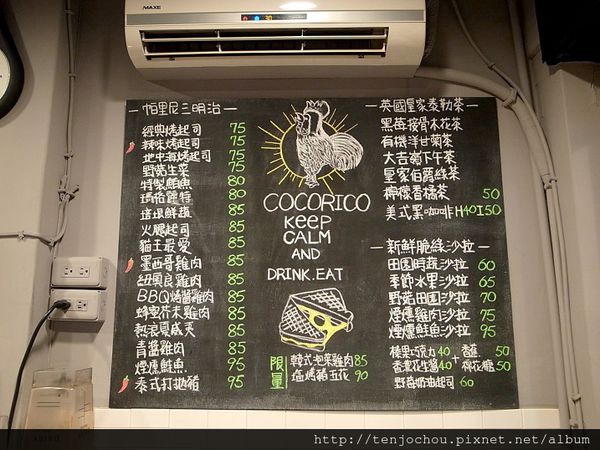 MAXE
30
帕里尼三明治
經典烤起司 75
辣味烤起司 75
地中海烤起司 75
野菇生菜 75
特製鮪魚 80
瑪格麗特 80
85
火腿起司 85
貓王最愛 85
墨西哥雞肉 85
紐奧良雞肉 85
BBQ烤醬雞肉 85
蜂蜜芥末雞肉 85
熱浪夏威夷 85
青醬雞肉 85
煙燻鮭魚 95
泰式打拋豬 95
COCORICO
KEEP
CALM
AND
DRINK.EAT
限量
韓式泡菜雞肉 85
鹽烤豬五花 90
英國皇家泰勒茶
黑莓接骨木花茶
有機洋甘菊茶
大吉嶺下午茶
皇家伯爵綠茶
檸檬香橘茶 50
美式黑咖啡 H40 I50
新鮮脆綠沙拉
田園時蔬沙拉 60
季節水果沙拉 65
野菇田園沙拉 70
煙燻雞肉沙拉 75
煙燻鮭魚沙拉 95
榛果巧克力 40 + 香蕉 50
香濃花生醬 40 棉花糖 50
野莓奶油起司 60
http://tenjochou.pixnet.net/album